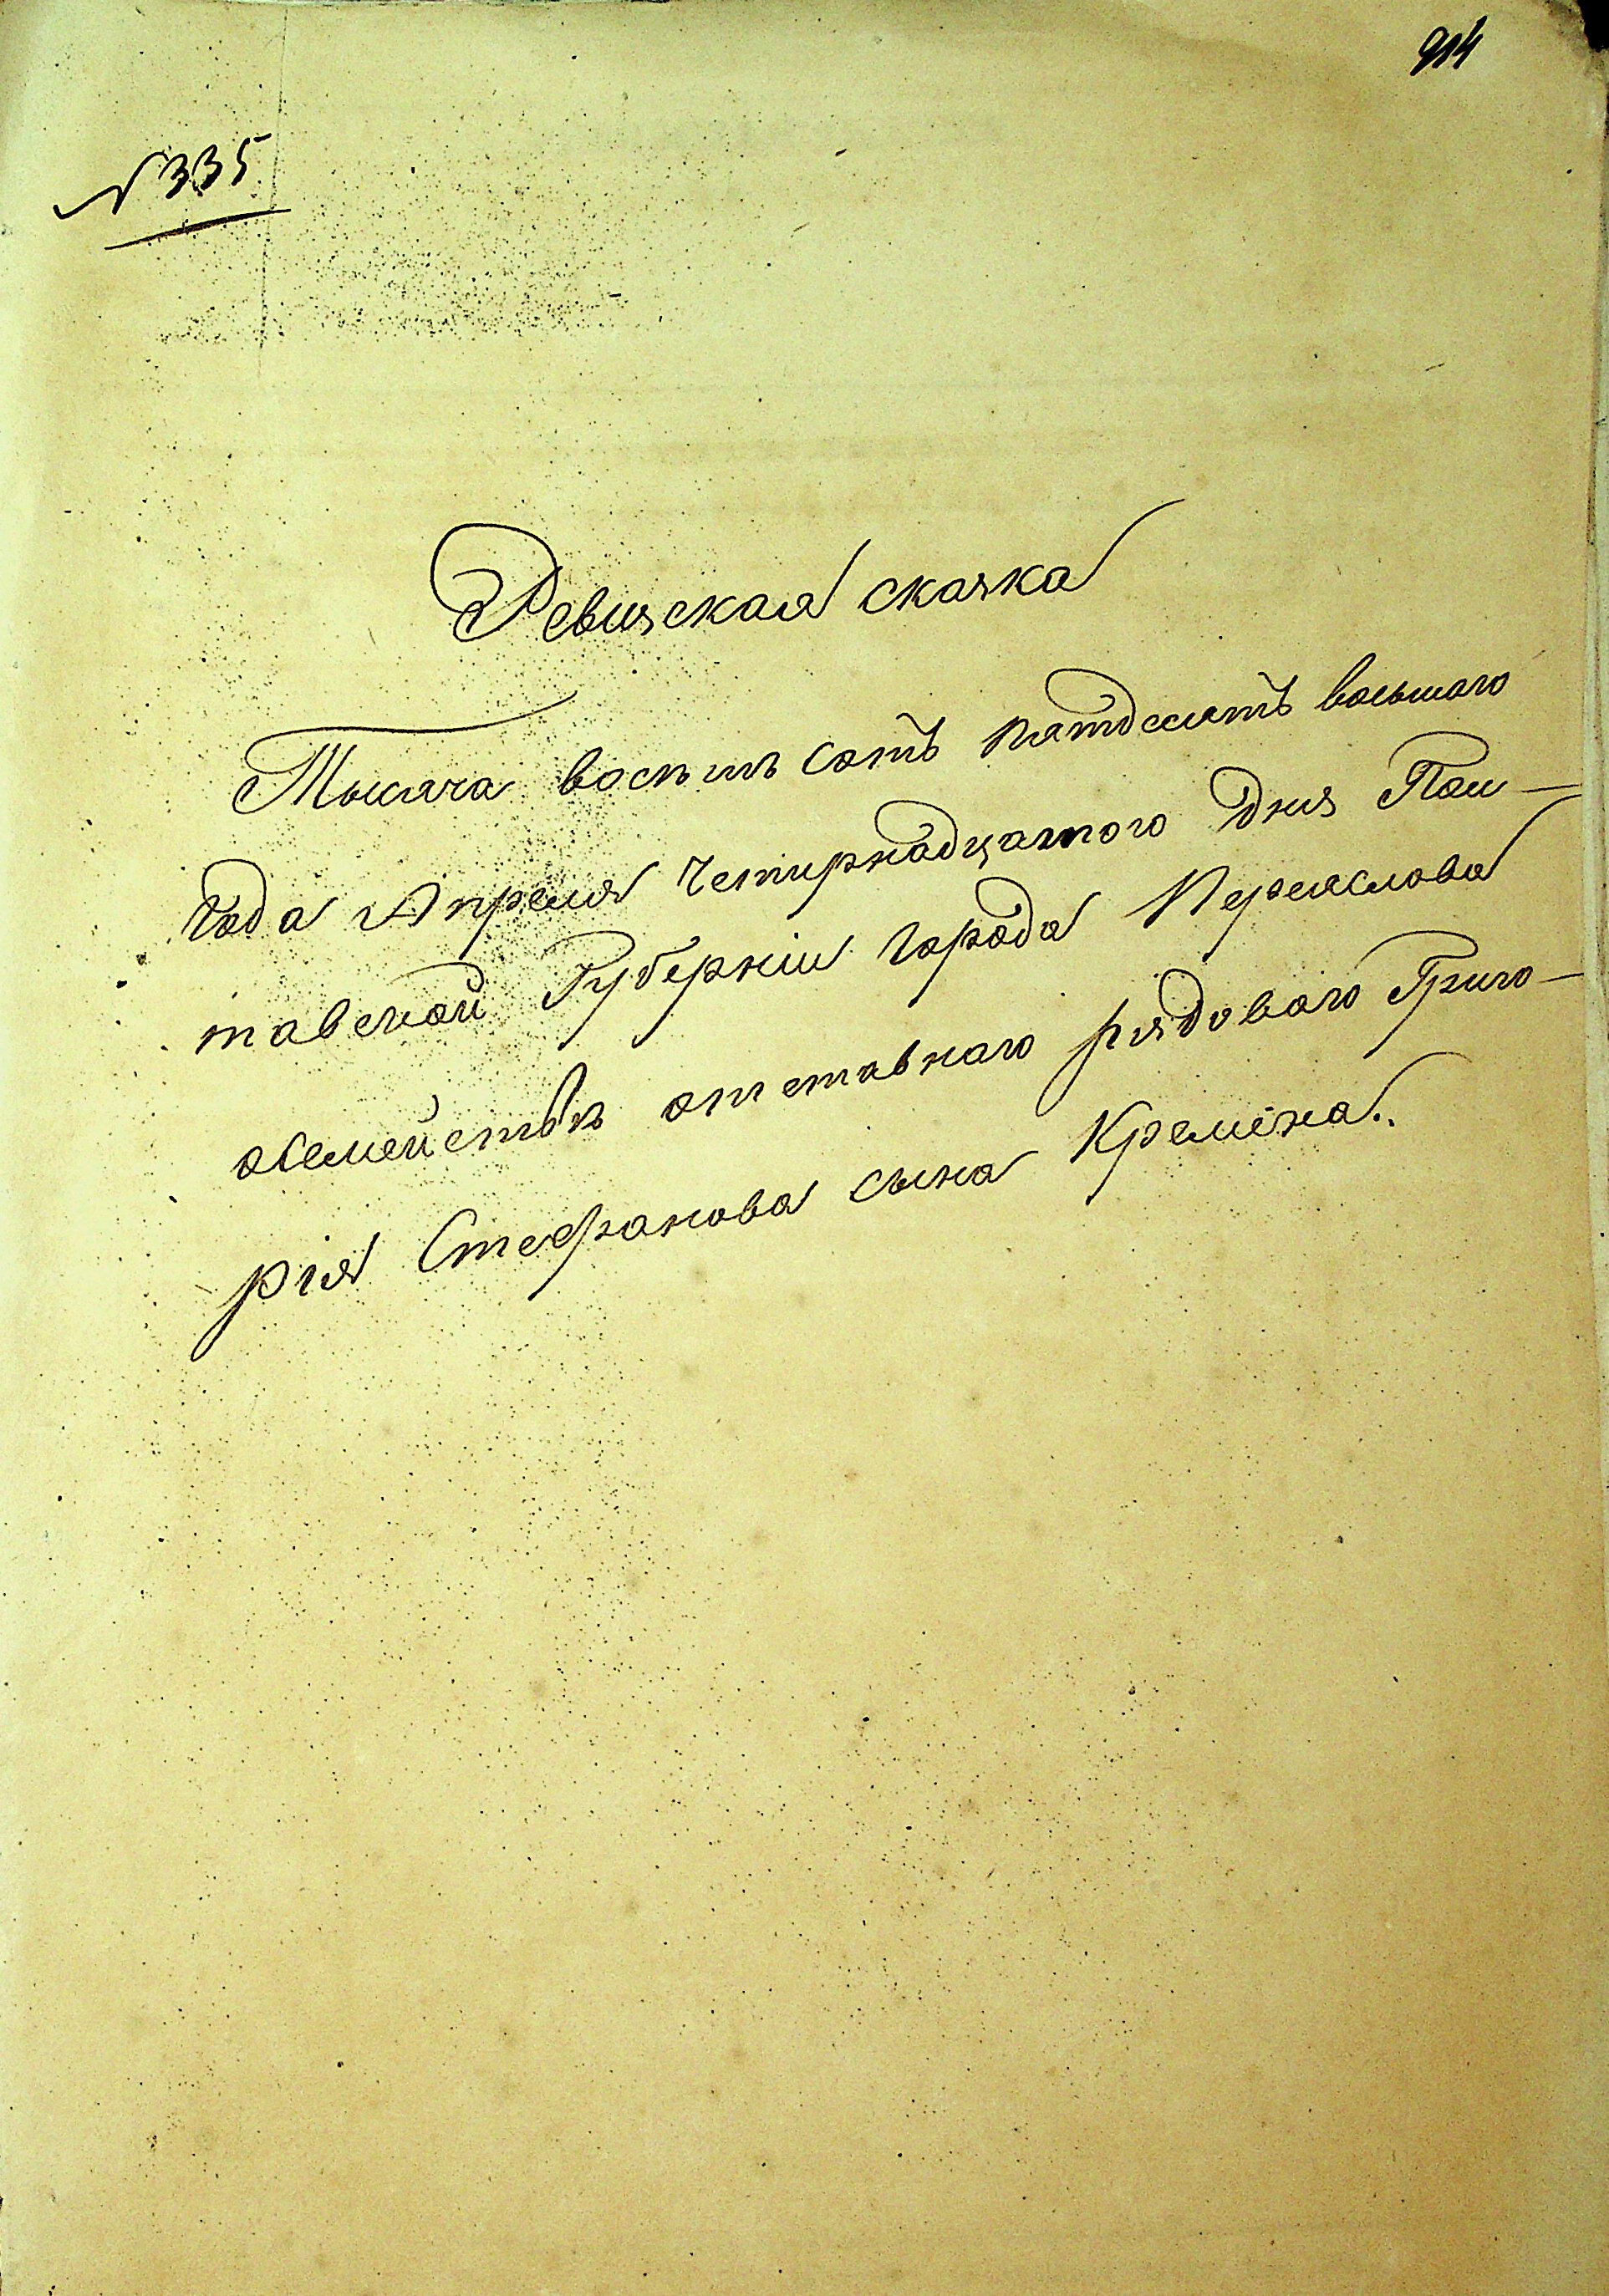 914
№ 335
Ревизская сказка
Тысяча восемь сотъ пятдесятъ восьмого
года Апреля четирнадцатого дня Пол-
тавской Губерніи города Переяслова
осемействѣ отставнаго рядоваго Григо-
рія Стефанова сына Кремéна.